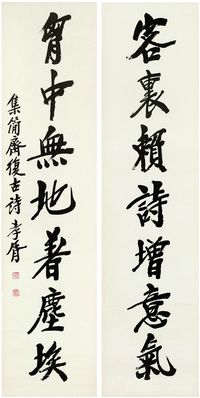 客裏賴詩增意氣
胷中無地着塵埃
集簡齋復古詩孝胥